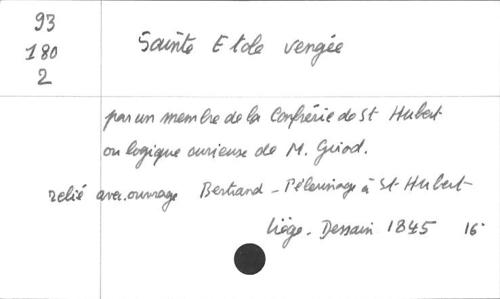 93
180
2
Sainte Etole vengée
par un membre de la Confrérie de St Hubert
ou logique curieuse de M. Giród.
relié avec.ouvrage Bertrand - Pèlerinage à St-Hubert
Liége. Dessain 1845 16°